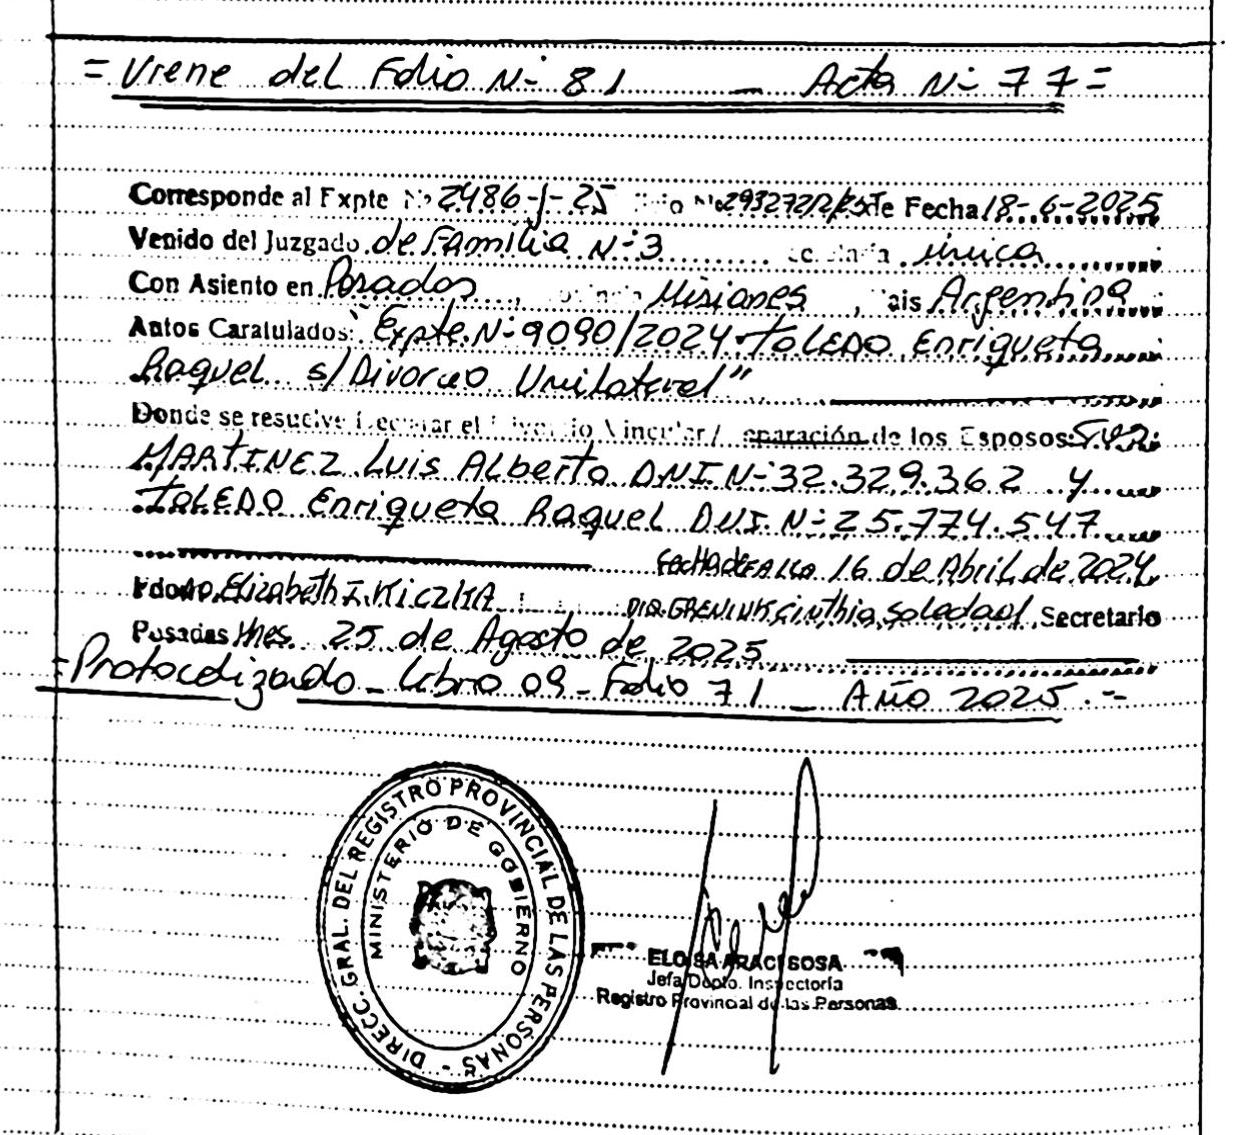 = Viene del Folio Nº 81 _ Acta Nº 77 =
Corresponde al Expte Nº 2486-J-25 Nº 2932722/25 de Fecha 18-6-2025
Venido del Juzgado de Familia Nº 3 Secretaría única
Con Asiento en Posadas, Provincia Misiones, Pais Argentina
Autos Caratulados: "Expte. Nº 9090/2024 TOLEDO Enriqueta
Raquel s/Divorcio Unilateral"
Donde se resuelve Decretar el Divorcio Vincular/ Separación de los Esposos:
MARTINEZ Luis Alberto DNI Nº 32.329.362 y
TOLEDO Enriqueta Raquel DNI. Nº 25.774.547
FECHA DE FALLO 16 de Abril de 2024
Fdo. Elizabeth I. KICZKA Cinthia Soledad, Secretario
Posadas Mnes. 25 de Agosto de 2025
= Protocolizado _ Libro 09 - Folio 71 _ Año 2025.--
DIRECC. GRAL. DEL REGISTRO PROVINCIAL DE LAS PERSONAS -
MINISTERIO DE GOBIERNO
ELOISA ARACI SOSA
Jefa Dpto. Inspectoría
Registro Provincial de las Personas